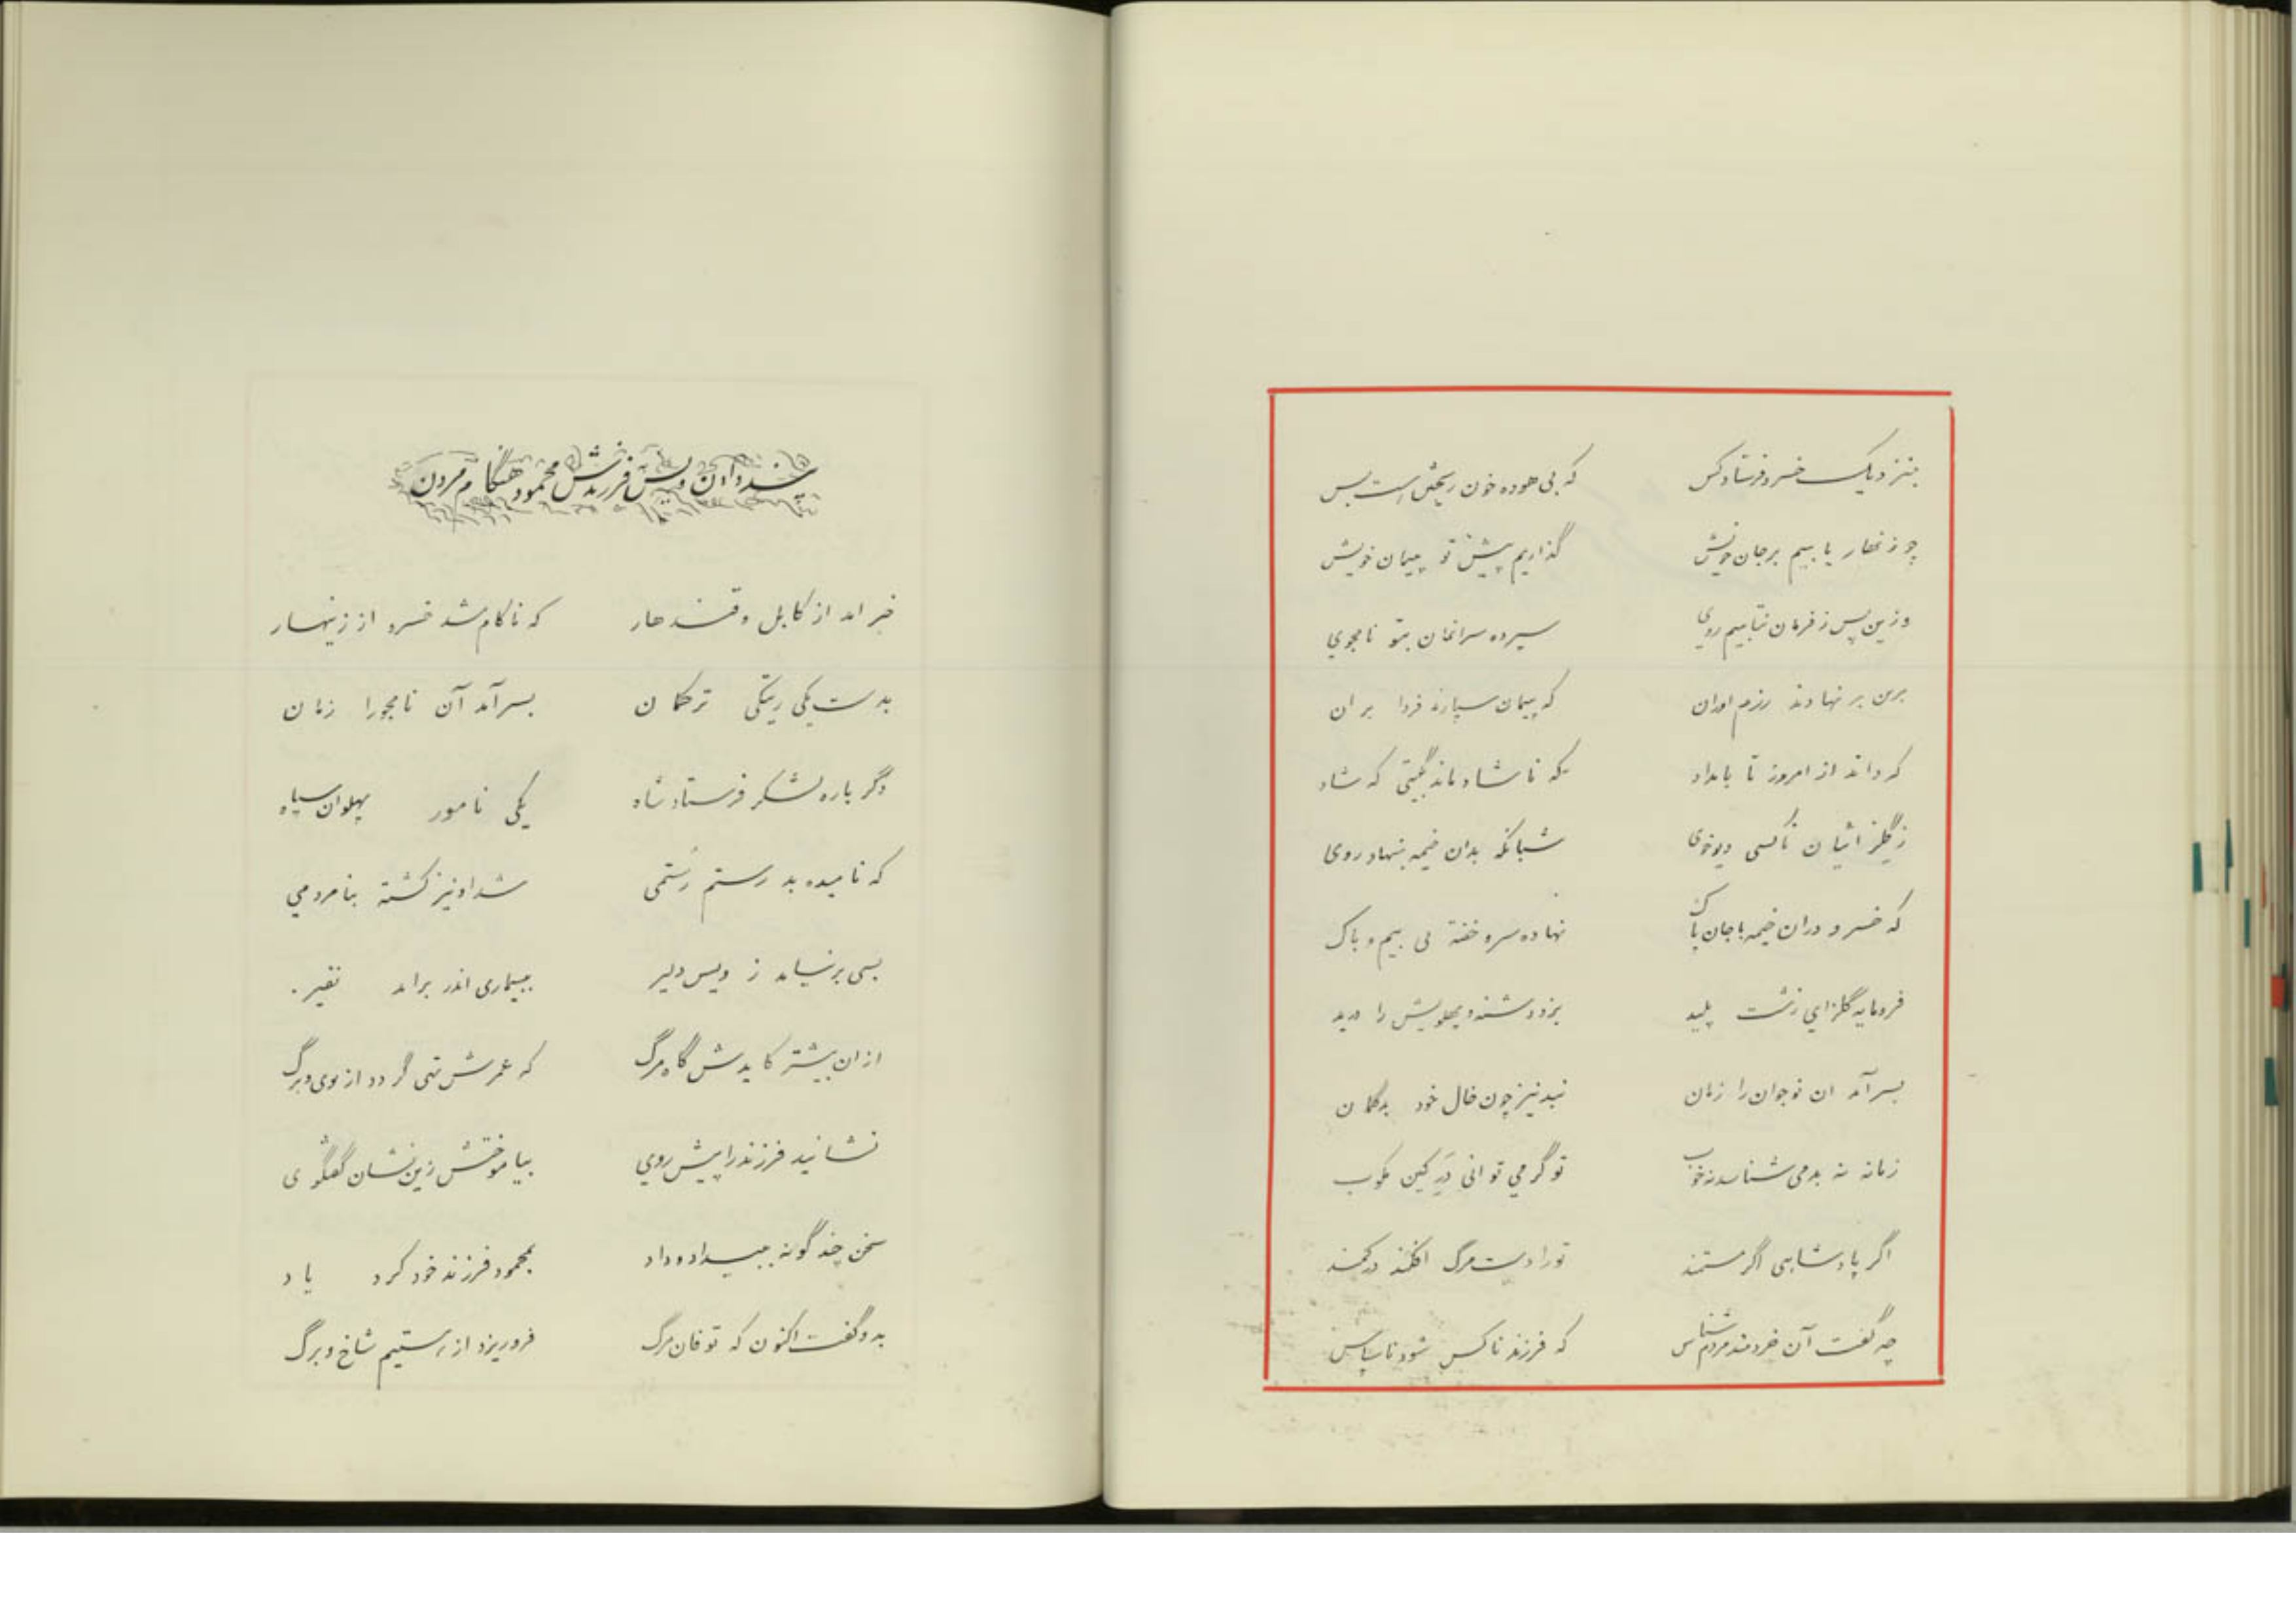 بنزدیک خسرو فرستاد کس که بی هوده خون ریختن است بس
چو زنهار یابیم بر جان خویش گذاریم پیش تو پیمان خویش
وزین پس ز فرمان نتابیم روی سپرده سرانمان بتو نامجوی
برین بر نهادند رزم اوران که پیمان سپارند فردا بران
که داند از امروز تا بامداد که ناشاد ماند بگیتی که شاد
ز گلزائیان ناکسی دیوخوی شبانگه بدان خیمه بنهاد روی
که خسرو دران خیمه با جان پاک نهاده سر و خفته بی بیم و باک
فرومایه گلزای زشت پلید بزد دشنه و پهلویش را درید
بسر آمد ان نوجوان را زمان نبد نیز چون خال خود بدگمان
زمانه نه بد می شناسد نه خوب تو گر می توانی دَرِ کین مکوب
اگر پادشاهی اگر مستمند تو را دست مرگ افکند در کمند
چه گفت آن خردمند مردم شناس که فرزند ناکس شود ناسپاس
پند دادن ویس فرزندش محمود هنگام مردن
خبر امد از کابل و قندهار که ناکام شد خسرو از زینهار
بدست یکی ریتکی ترکمان بسر آمد آن نامجو را زمان
دگر باره لشکر فرستاد شاه یکی نامور پهلوان سپاه
که نامیده بد رستم رُستمی شد او نیز کشته بنامردمی
بسی بر نیامد ز ویس دلیر ببیماری اندر برامد نفیر
ازان پیشتر کایدش گاه مرگ که عمرش تهی گردد از بوی و برگ
نشانید فرزند را پیش روی بیاموختش زین نشان گفتگوی
سخن چند گونه ببیداد و داد بمحمود فرزند خود کرد یاد
بدو گفت اکنون که توفان مرگ فرو ریزد از رستیم شاخ و برگ